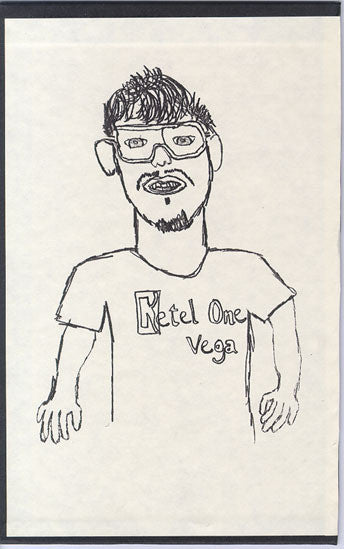 Ketel One
Vega